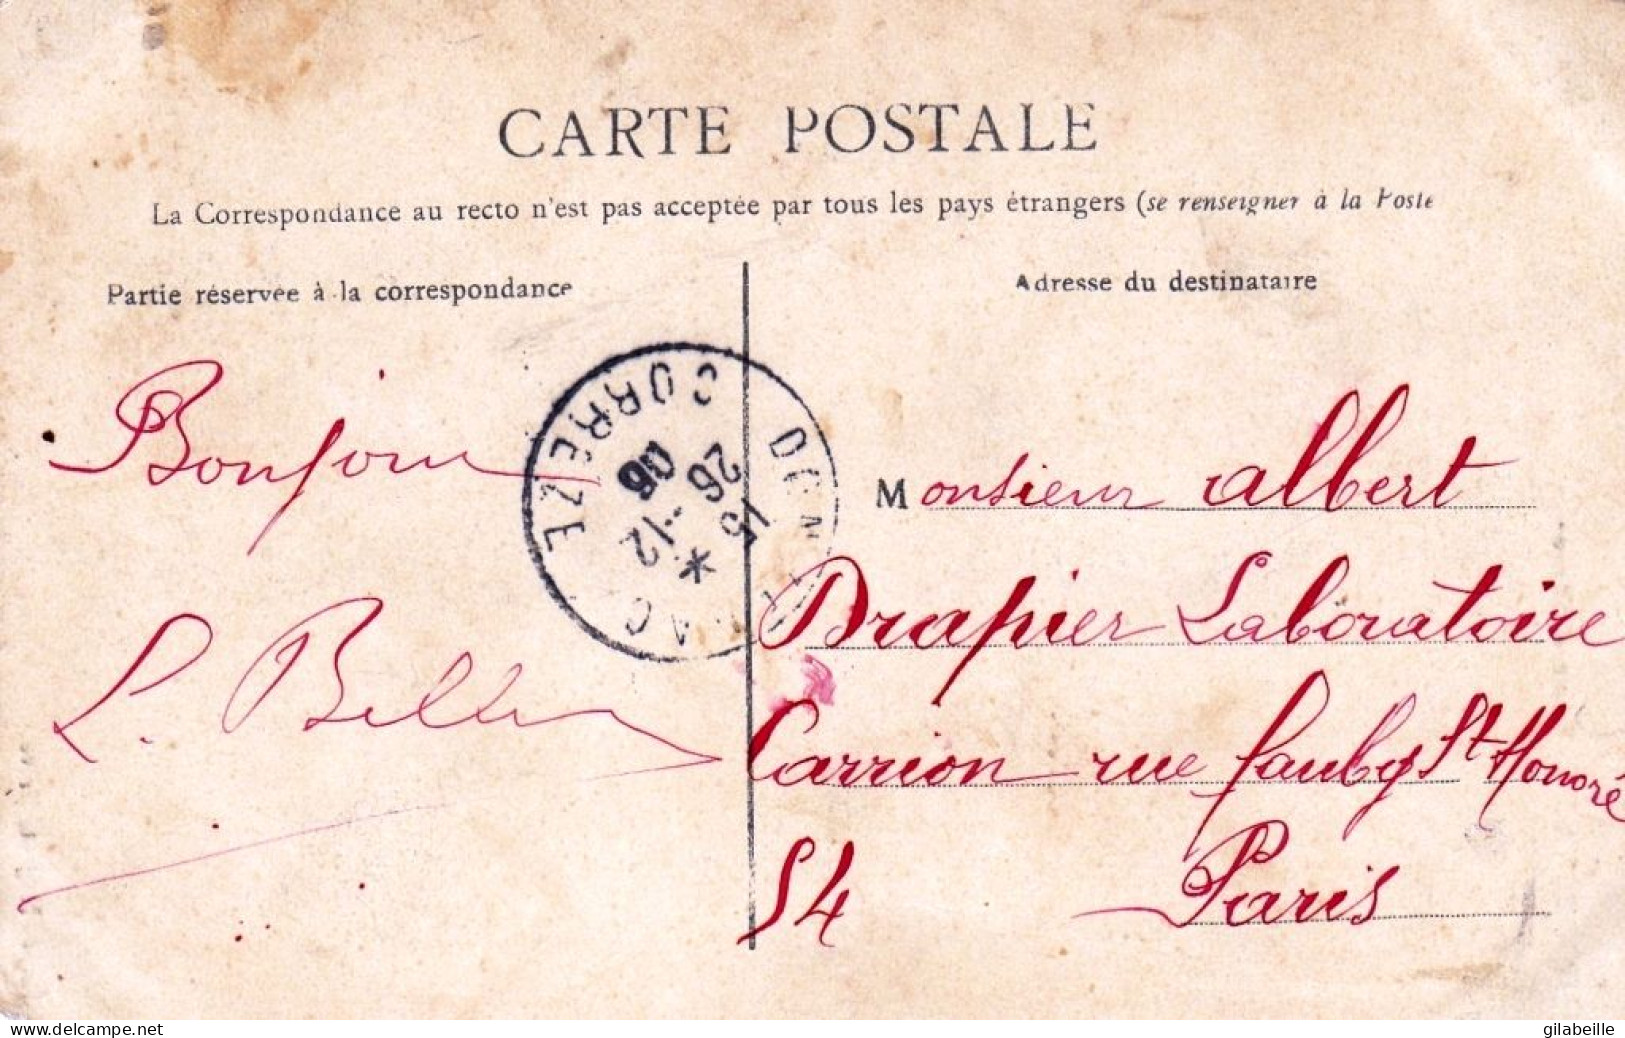 CARTE POSTALE
La Correspondance au recto n'est pas acceptée par tous les pays étrangers (se renseigner à la Poste
Partie réservée à la correspondance
Adresse du destinataire
Bonjour
L. Bellen
CORREZE
15
26 -12
06
Monsieur Albert
Drapier Laboratoire
Carrion rue faubg St Honoré
54 Paris
www.delcampe.net
gilabeille